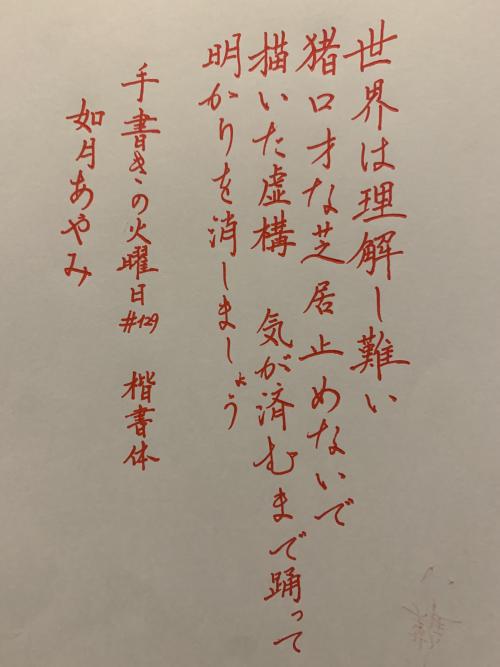 世界は理解し難い
猪口才な芝居止めないで
描いた虚構　気が済むまで踊って
明かりを消しましょう
手書きの火曜日#129　楷書体
如月あやみ